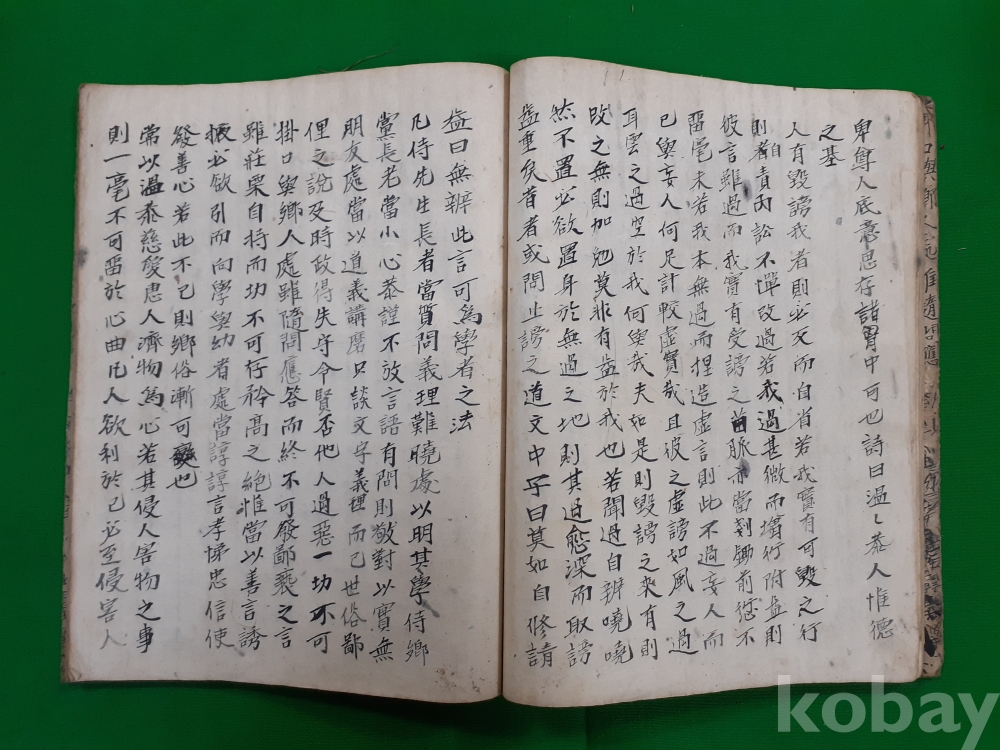 卑尊人底意思存諸胷中可也詩曰溫〻恭人惟德
之基
人有毀謗我者則必反而自省若我實有可毀之行
則自責內訟不憚改過若我過甚微而增衍附益則
彼言雖過而我實有受謗之苗脉亦當剗鋤前愆不
留毫末若我本無過而揑造虛言則此不過妄人而
已與妄人何足計較虛實哉且彼之虛謗如風之過
耳雲之過空於我何與哉夫如是則毀謗之來有則
改之無則加勉莫非有益於我也若聞過自辨嘵嘵
然不置必欲置身於無過之地則其過愈深而取謗
益重矣昔者或問止謗之道文中子曰莫如自修請
益曰無辨此言可為學者之法
凡侍先生長者當質問義理難曉處以明其學侍鄉
黨長老當小心恭謹不放言語有問則敬對以實無
朋友處當以道義講磨只談文字義理而已世俗鄙
俚之說及時政得失守令賢否他人過惡一切不可
掛口與鄉人處雖隨問應答而終不可發鄙褻之言
雖莊栗自持而切不可行矜高之絶惟當以善言誘
掖必欲引而向學與幼者處當諄諄言孝悌忠信使
發善心若此不已則鄉俗漸可變也
常以溫恭慈愛惠人濟物為心若其侵人害物之事
則一毫不可留於心曲凡人欲利於己必至侵害人
kobay